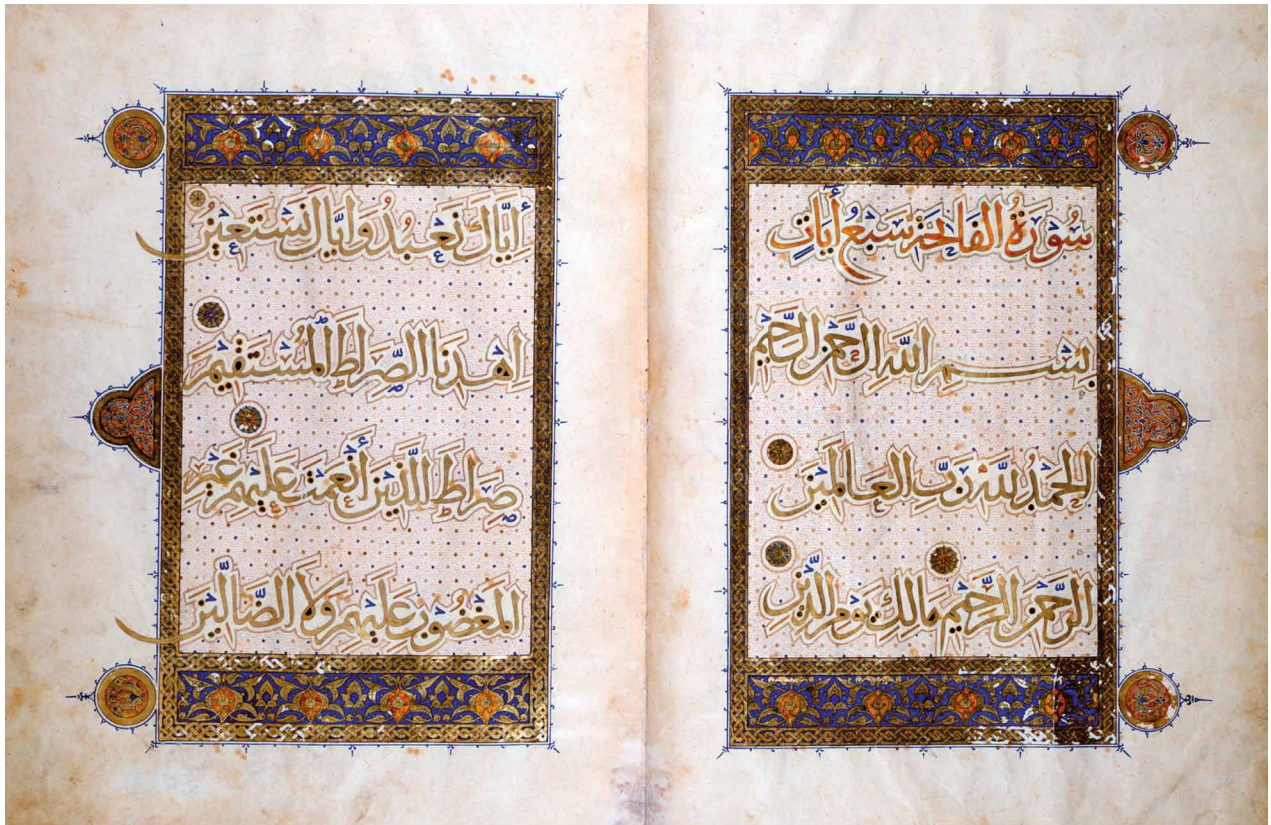 سُورَةُ الفَاتِحَةِ سَبْعُ أٰيَاتٍ
بِسْمِ اللَّهِ الرَّحْمٰنِ الرَّحِيْمِ
الحَمْدُ لِلَّهِ رَبِّ العَالَمِيْنَ
الرَّحْمٰنِ الرَّحِيْمِ مَالِكِ يَوْمِ الدِّيْنِ
إِيَّاكَ نَعْبُدُ وَإِيَّاكَ نَسْتَعِيْنُ
اِهْدِنَا الصِّرَاطَ الْمُسْتَقِيْمَ
صِرَاطَ الَّذِيْنَ أَنْعَمْتَ عَلَيْهِمْ غَيْرِ
المَغْضُوْبِ عَلَيْهِمْ وَلَا الضَّالِّيْنَ